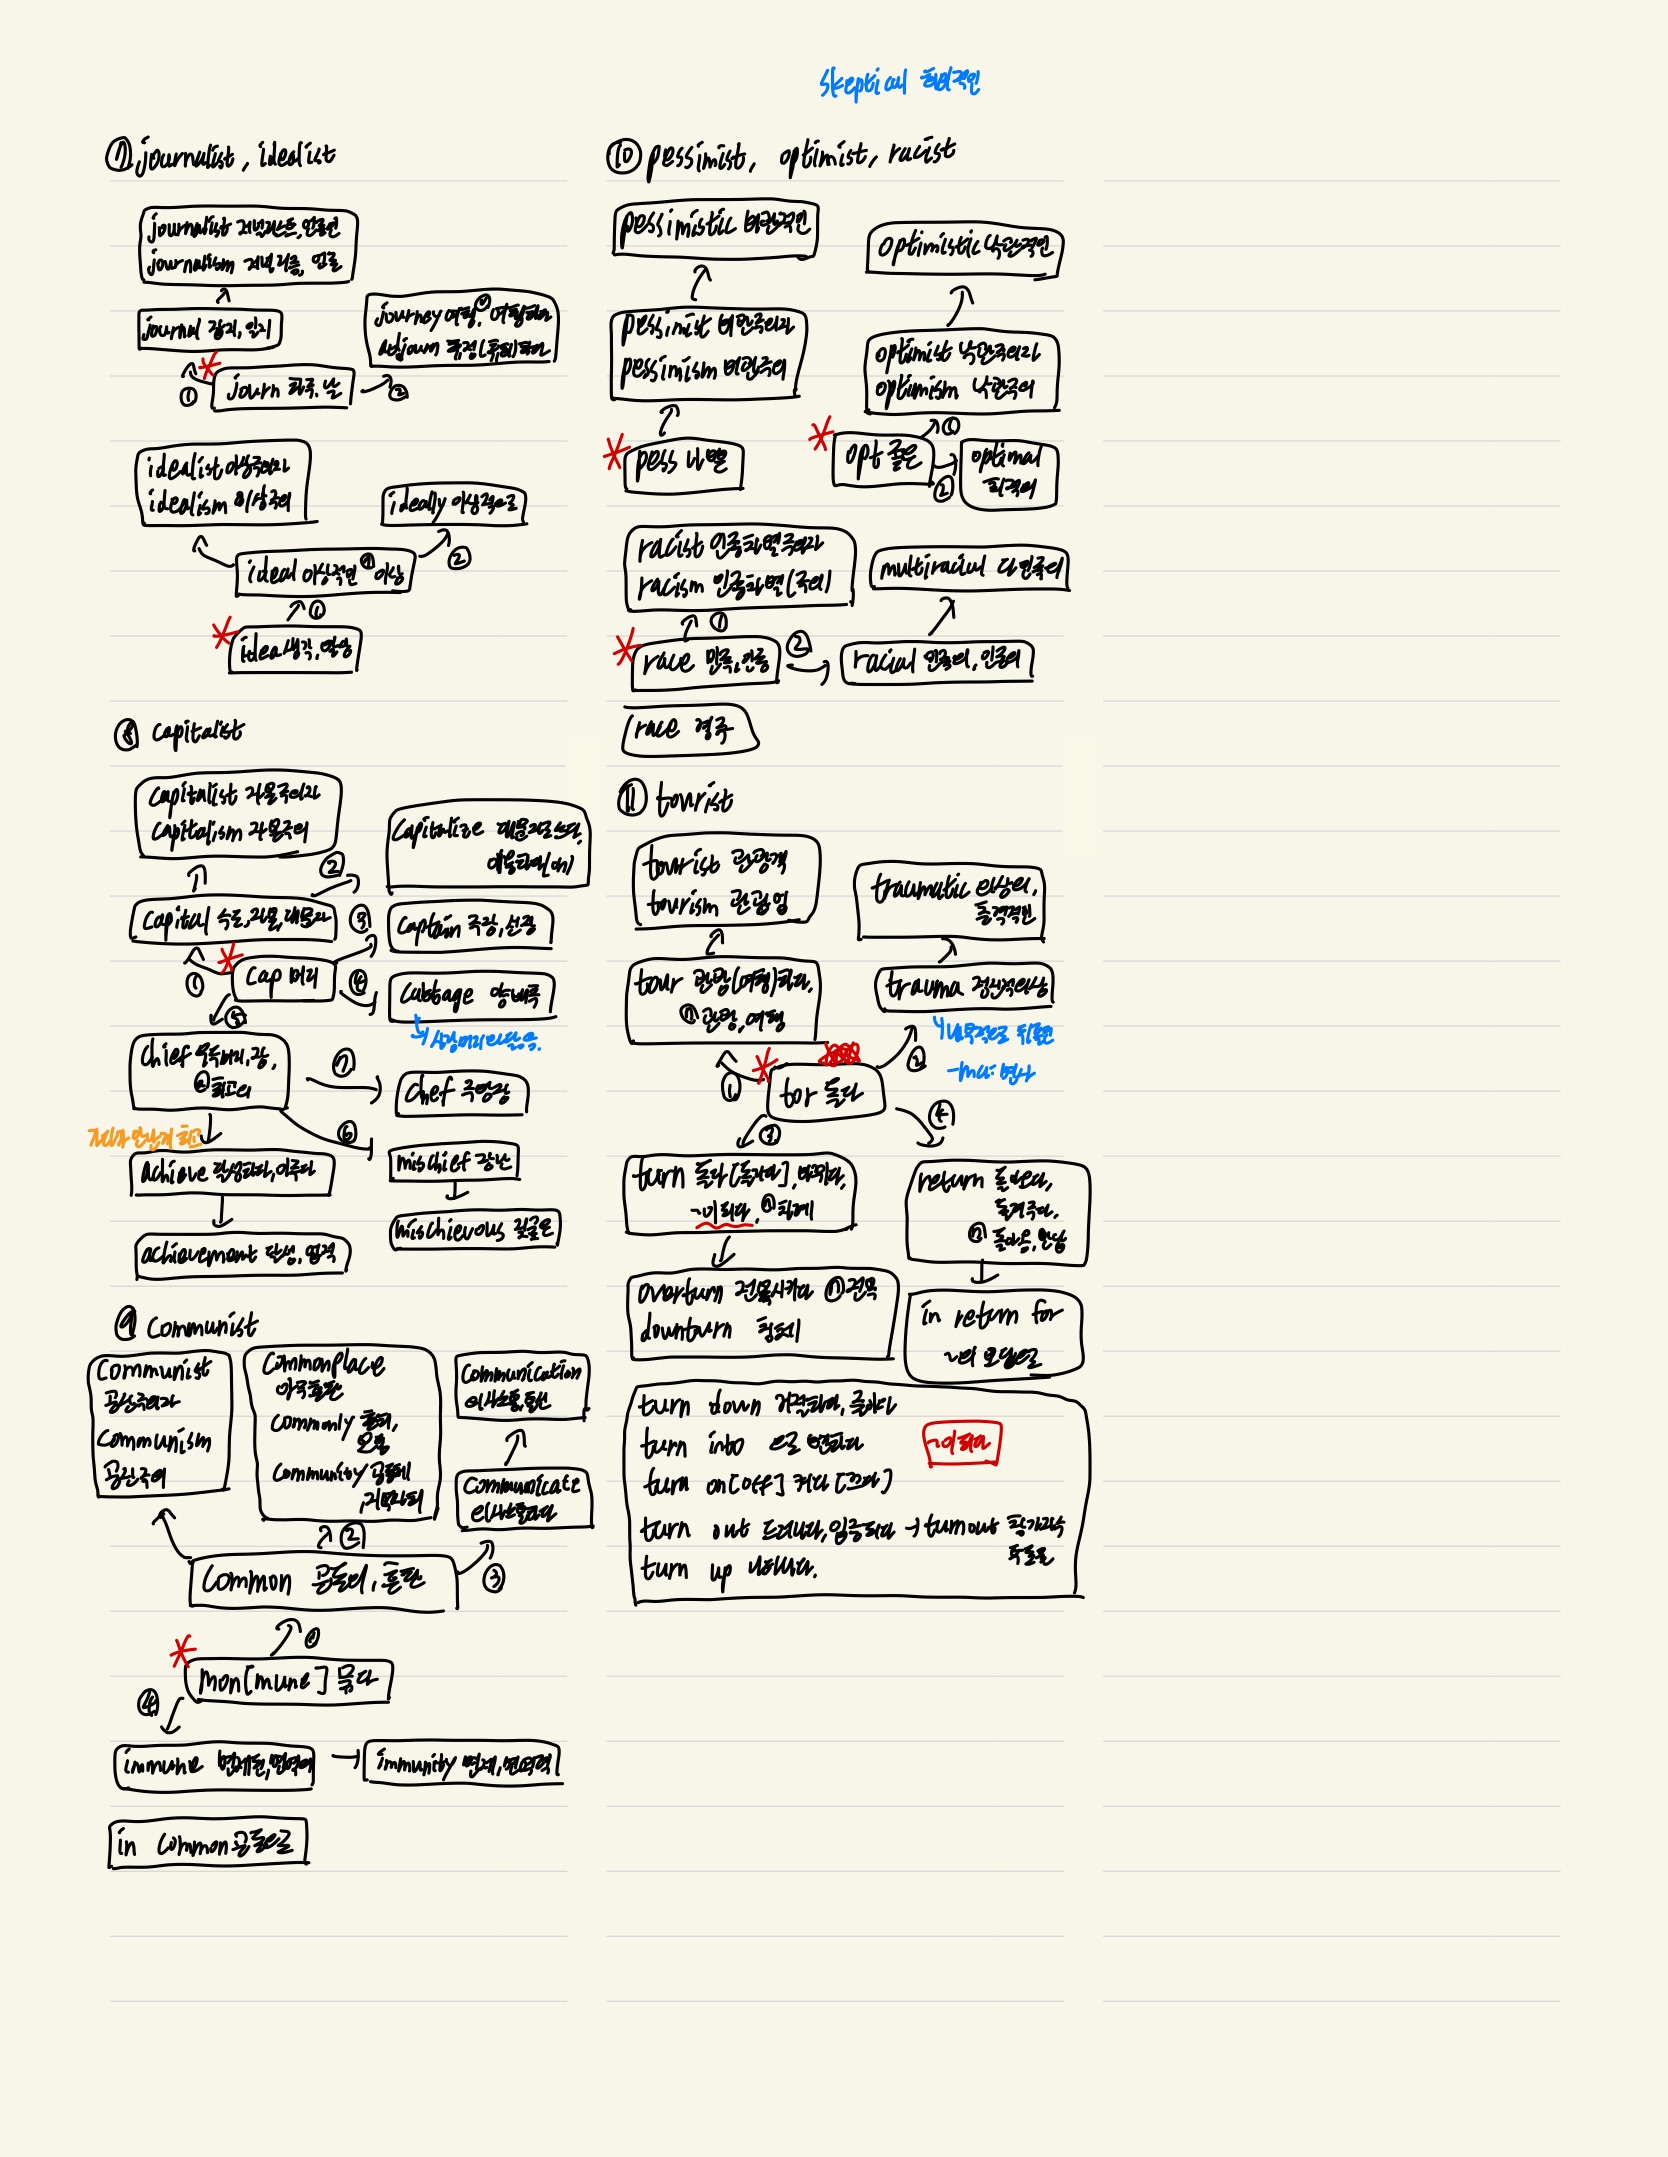 skeptical 회의적인
⑦ journalist, idealist
journalist 저널리스트, 언론인
journalism 저널리즘, 언론
journal 잡지, 일지
journey 여행, ⓥ 여행하다
adjourn 휴정(휴회)하다
① journ 하루, 날 ②
idealist 이상주의자
idealism 이상주의
ideally 이상적으로
ideal 이상적인 ⓝ 이상 ②
①
idea 생각, 발상
⑧ capitalist
capitalist 자본주의자
capitalism 자본주의
capitalize 대문자로 쓰다,
이용하다(on)
②
capital 수도, 자본, 대문자 ③
captain 주장, 선장
① cap 머리 ④
cabbage 양배추
→ 사람머리만 닮음.
⑤
chief 우두머리, 장,
ⓐ 최고의
⑦
chef 주방장
⑥
achieve 달성하다, 이루다
mischief 장난
achievement 달성, 업적
mischievous 짓궂은
⑨ communist
communist
공산주의자
communism
공산주의
commonplace
아주흔한
commonly 흔히,
보통
community 공동체
, 지역사회
communication
의사소통, 통신
communicate
의사소통하다
②
common 공동의, 흔한 ③
①
mon[mune] 묶다
④
immune 면제된, 면역의
immunity 면제, 면역력
in common 공동으로
⑩ pessimist, optimist, racist
pessimistic 비관적인
optimistic 낙관적인
pessimist 비관주의자
pessimism 비관주의
optimist 낙관주의자
optimism 낙관주의
①
pess 나쁜
opt 좋은 ②
optimal
최적의
racist 인종차별주의자
racism 인종차별(주의)
multiracial 다민족의
①
race 민족, 인종 ②
racial 민족의, 인종의
race 경주
⑪ tourist
tourist 관광객
tourism 관광업
traumatic 외상의,
충격적인
tour 관광(여행)하다,
ⓝ 관광, 여행
trauma 정신적외상
-ma: 명사
① tor 돌다 ② ④
③
turn 돌다[돌리다], 바뀌다,
~이 되다, ⓝ 차례
return 돌아오다,
돌려주다,
ⓝ 돌아옴, 반납
overturn 전복시키다 ⓝ 전복
downturn 침체
in return for
~의 보답으로
turn down 거절하다, 줄이다
turn into 으로 변하다
~이 되다
turn on[off] 켜다[끄다]
turn out 드러나다, 입증되다 → turnout 참가자수
투표율
turn up 나타나다.